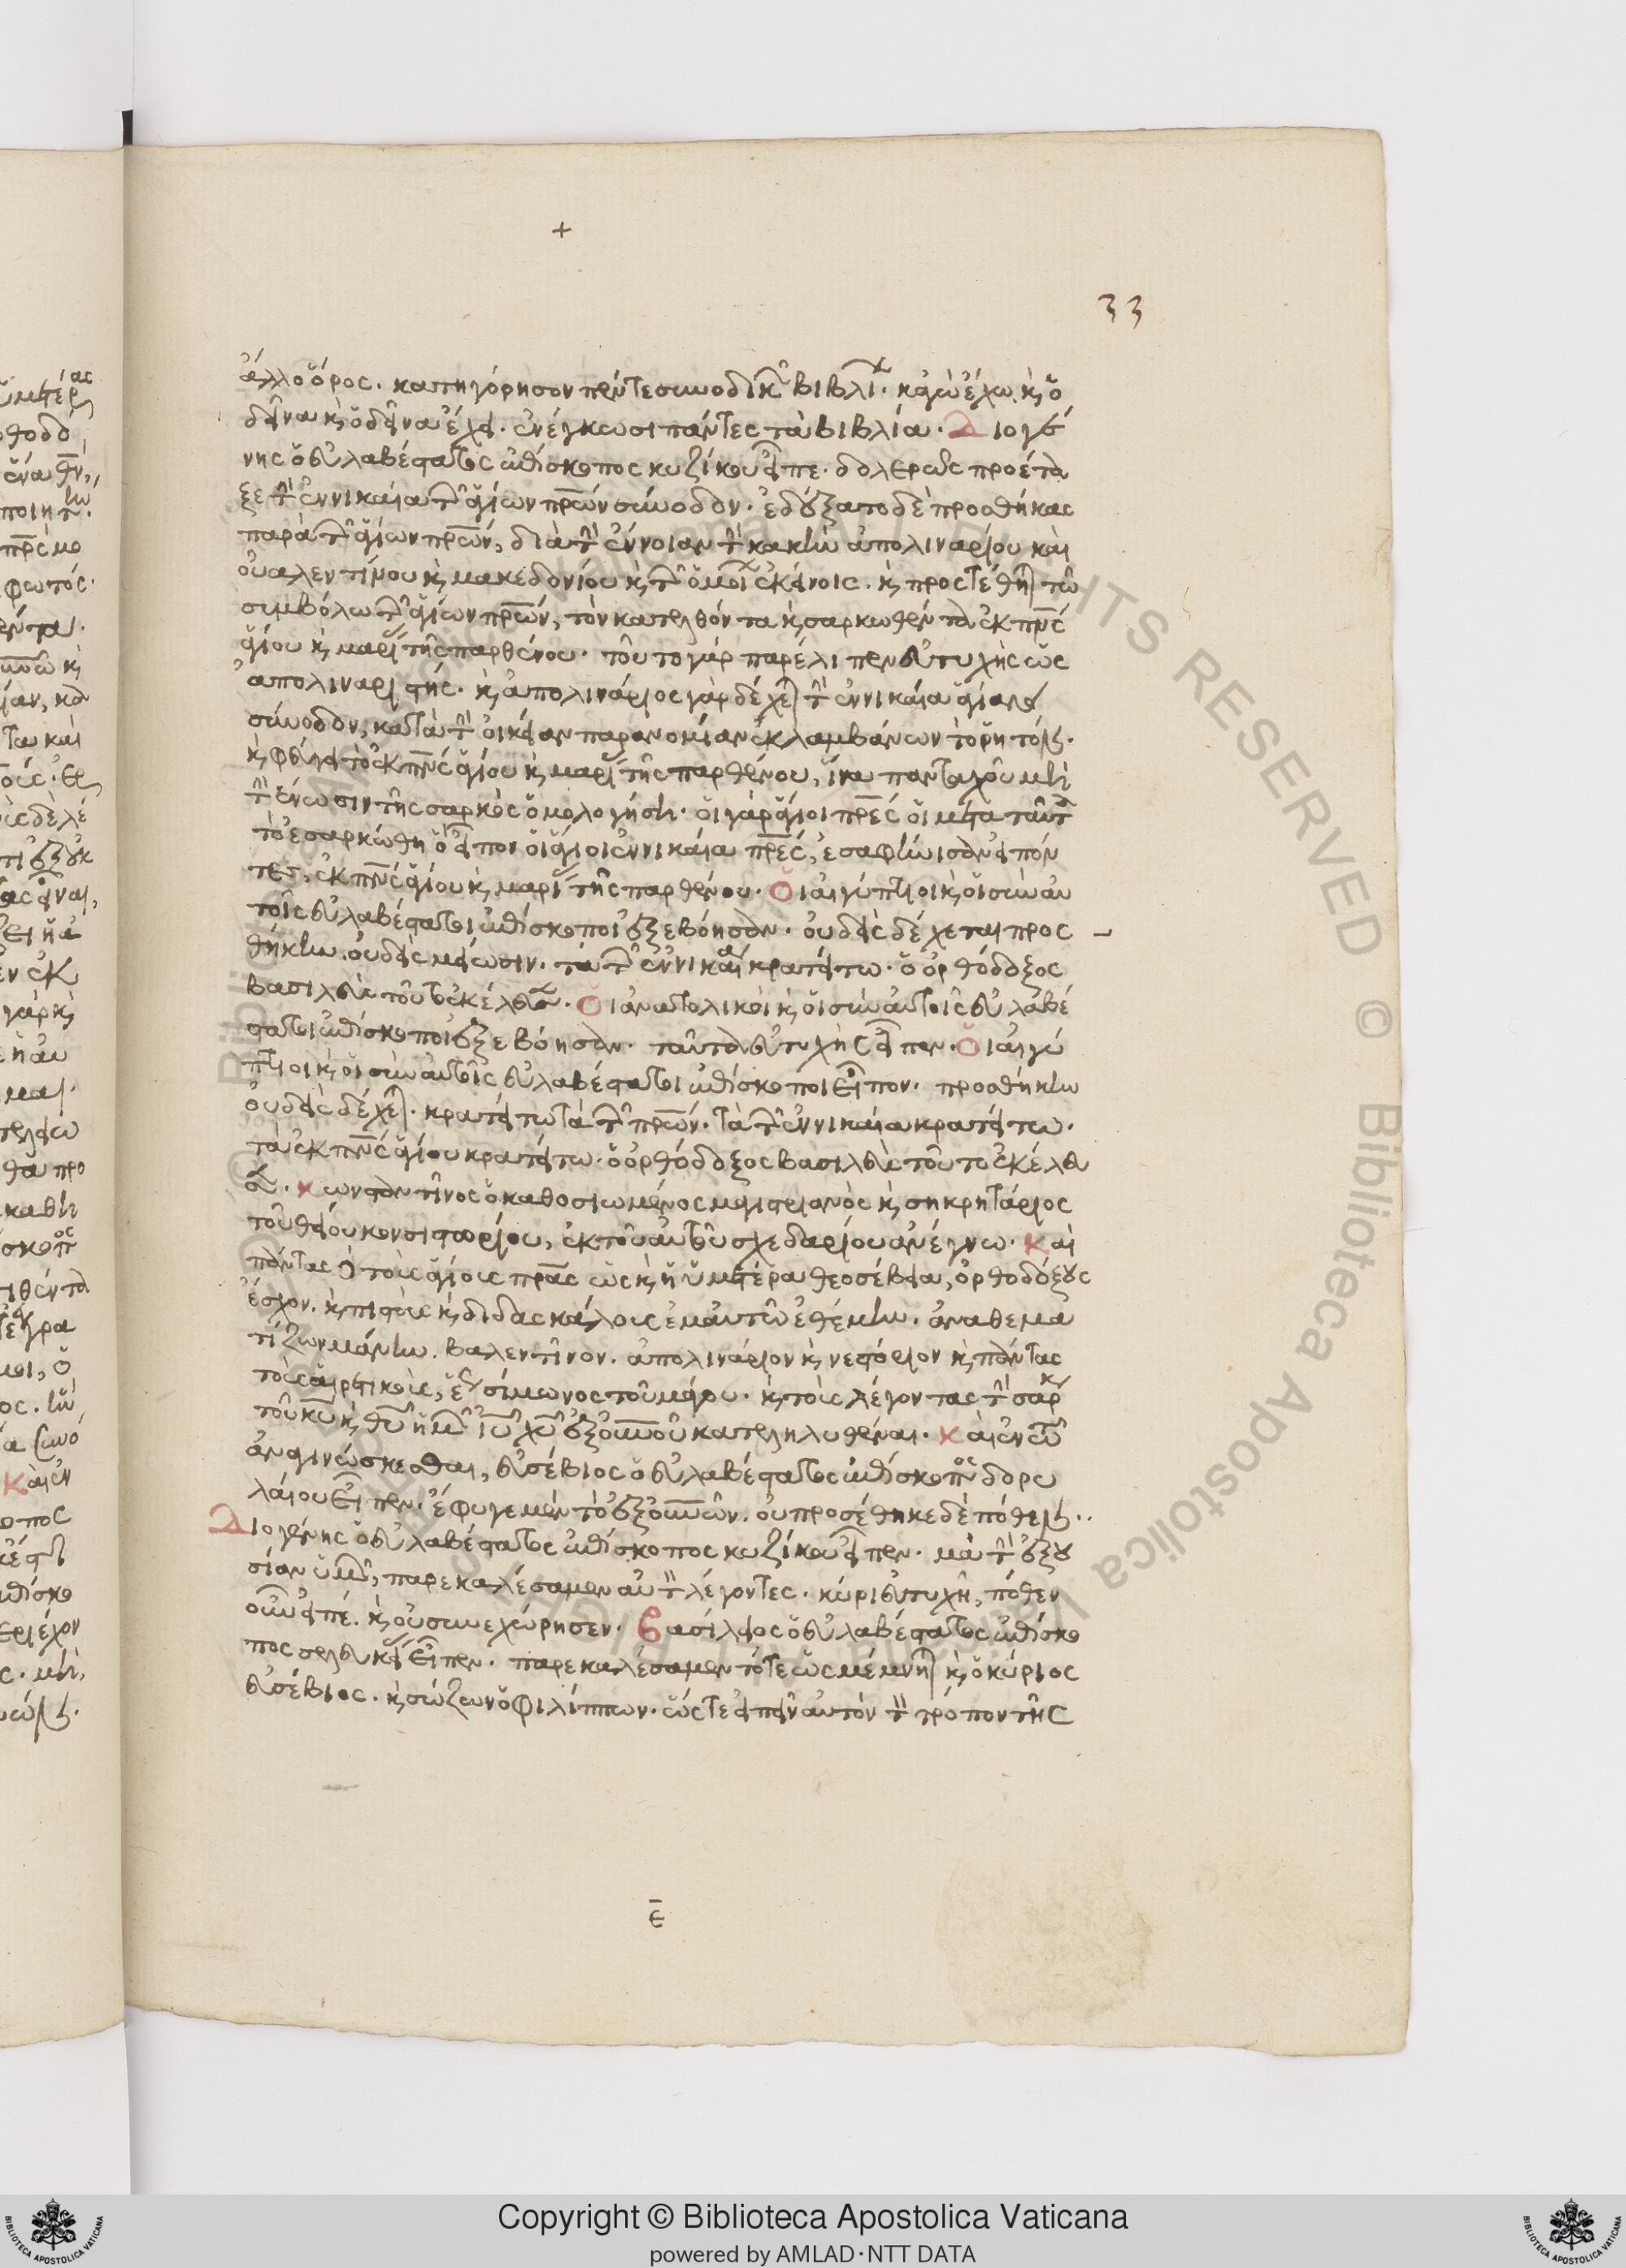 +
33
ἄλλο ὅρος. κατηγόρησον πέντε συνοδικ βιβλί. κἀγὼ ἔχω. κ ὁ
δεῖνα κ ὁ δεῖνα ἔχει. ἐνέγκωσι πάντες τὰ βιβλία. Διογέ
νης ὁ εὐλαβέστατος ἐπίσκοπος κυζίκου εἶπε. δολερῶς προέτα
ξε τὴν ἐν νικαία τ ἁγίων πρων σύνοδον. ἐδέξατο δὲ προσθήκας
παρὰ τ ἁγίων πρων, διὰ τὴν ἔννοιαν τὴν κακὴν ἀπολιναρίου καὶ
οὐαλεντίνου κ μακεδονίου κ τ ὁμοί ἐκείνοις. κ προστέθη τῶ
συμβόλω τ ἁγίων πρων, τὸν κατελθόντα κ σαρκωθέντα ἐκ πνς
ἁγίου κ μαρί τῆς παρθένου. τοῦτο γὰρ παρέλιπεν εὐτυχὴς ὡς
ἀπολιναριστής. κ ἀπολινάριος γὰρ δέχε τὴν ἐν νικαία ἁγίαν
σύνοδον, κατὰ τὴν οἰκείαν παρανομίαν ἐκλαμβάνων τὸ ῥητόν.
κ φεύγει τὸ ἐκ πνς ἁγίου κ μαρί τῆς παρθένου, ἵνα πανταχοῦ μὴ
τὴν ἕνωσιν τῆς σαρκὸς ὁμολογήση. οἱ γὰρ ἅγιοι πρες οἱ μετὰ ταῦτ
τὸ ἐσαρκώθη ὃ εἶπον οἱ ἅγιοι ἐν νικαία πρες, ἐσαφήνισαν εἰπόν
τες, ἐκ πνς ἁγίου κ μαρί τῆς παρθένου. Οἱ αἰγύπτιοι κ οἱ σὺν αὐ
τοῖς εὐλαβέστατοι ἐπίσκοποι ἐξεβόησαν. οὐδεὶς δέχεται προς
θήκην. οὐδεὶς μείωσιν. τὰ τ ἐν νικαί κρατείτω. ὁ ὀρθόδοξος
βασιλεὺς τοῦτο ἐκέλευ. Οἱ ἀνατολικοὶ κ οἱ σὺν αὐτοῖς εὐλαβέ
στατοι ἐπίσκοποι ἐξεβόησαν. ταῦτα εὐτυχὴς εἶπεν. Οἱ αἰγύ
πτιοι κ οἱ σὺν αὐτοῖς εὐλαβέστατοι ἐπίσκοποι εἶπον. προσθήκην
οὐδεὶς δέχε. κρατείτω τὰ τ πρων. τὰ τ ἐν νικαία κρατείτω.
τὰ ἐκ πνς ἁγίου κρατείτω. ὁ ὀρθόδοξος βασιλεὺς τοῦτο ἐκέλευ
σ. κωνσταντῖνος ὁ καθοσιωμένος μαγιστριανὸς κ σηκρητάριος
τοῦ θείου κονσιστωρίου, ἐκ τοῦ αὐτοῦ σχεδαρίου ἀνέγνω. Καὶ
πάντας τοὺς ἁγίους πρας ὡς κ ἡ ὑμετέρα θεοσέβεια, ὀρθοδόξους
ἔσχον. κ πιστοὺς κ διδασκάλους ἐμαυτῶ ἐθέμην. ἀναθεμα
τίζων μάνην. βαλεντῖνον. ἀπολινάριον κ νεστόριον κ πάντας
τοὺς αἱρετικοὺς, ἕς σίμωνος τοῦ μάγου. κ τοὺς λέγοντας τὴν σάρκ
τοῦ κυ κ θυ ἡμ ιυ χυ ἐξ οὐνοῦ κατεληλυθέναι. Καὶ ἐν τῶ
ἀναγινώσκεσθαι, εὐσέβιος ὁ εὐλαβέστατος ἐπίσκοπος δορυ
λαίου εἶπεν. ἔφυγε μὲν τὸ ἐξ οὐνῶν. οὐ προσέθηκε δὲ πόθεν.
Διογένης ὁ εὐλαβέστατος ἐπίσκοπος κυζίκου εἶπεν. μὰ τὴν ἐξου
σίαν ὑμ, παρεκαλέσαμεν αὐτὸν λέγοντες. κύρι εὐτυχῆ, πόθεν
οὖν εἰπέ. κ οὐ συνεχώρησεν. Βασίλειος ὁ εὐλαβέστατος ἐπίσκο
πος σελευκεί εἶπεν. παρεκαλέσαμεν τότε ὡς μέμνη κ ὁ κύριος
εὐσέβιος. κ σώζων ὁ φιλίππων. ὥστε εἰπεῖν αὐτὸν τὸν τρόπον τῆς
ε̄
Copyright © Biblioteca Apostolica Vaticana
powered by AMLAD·NTT DATA